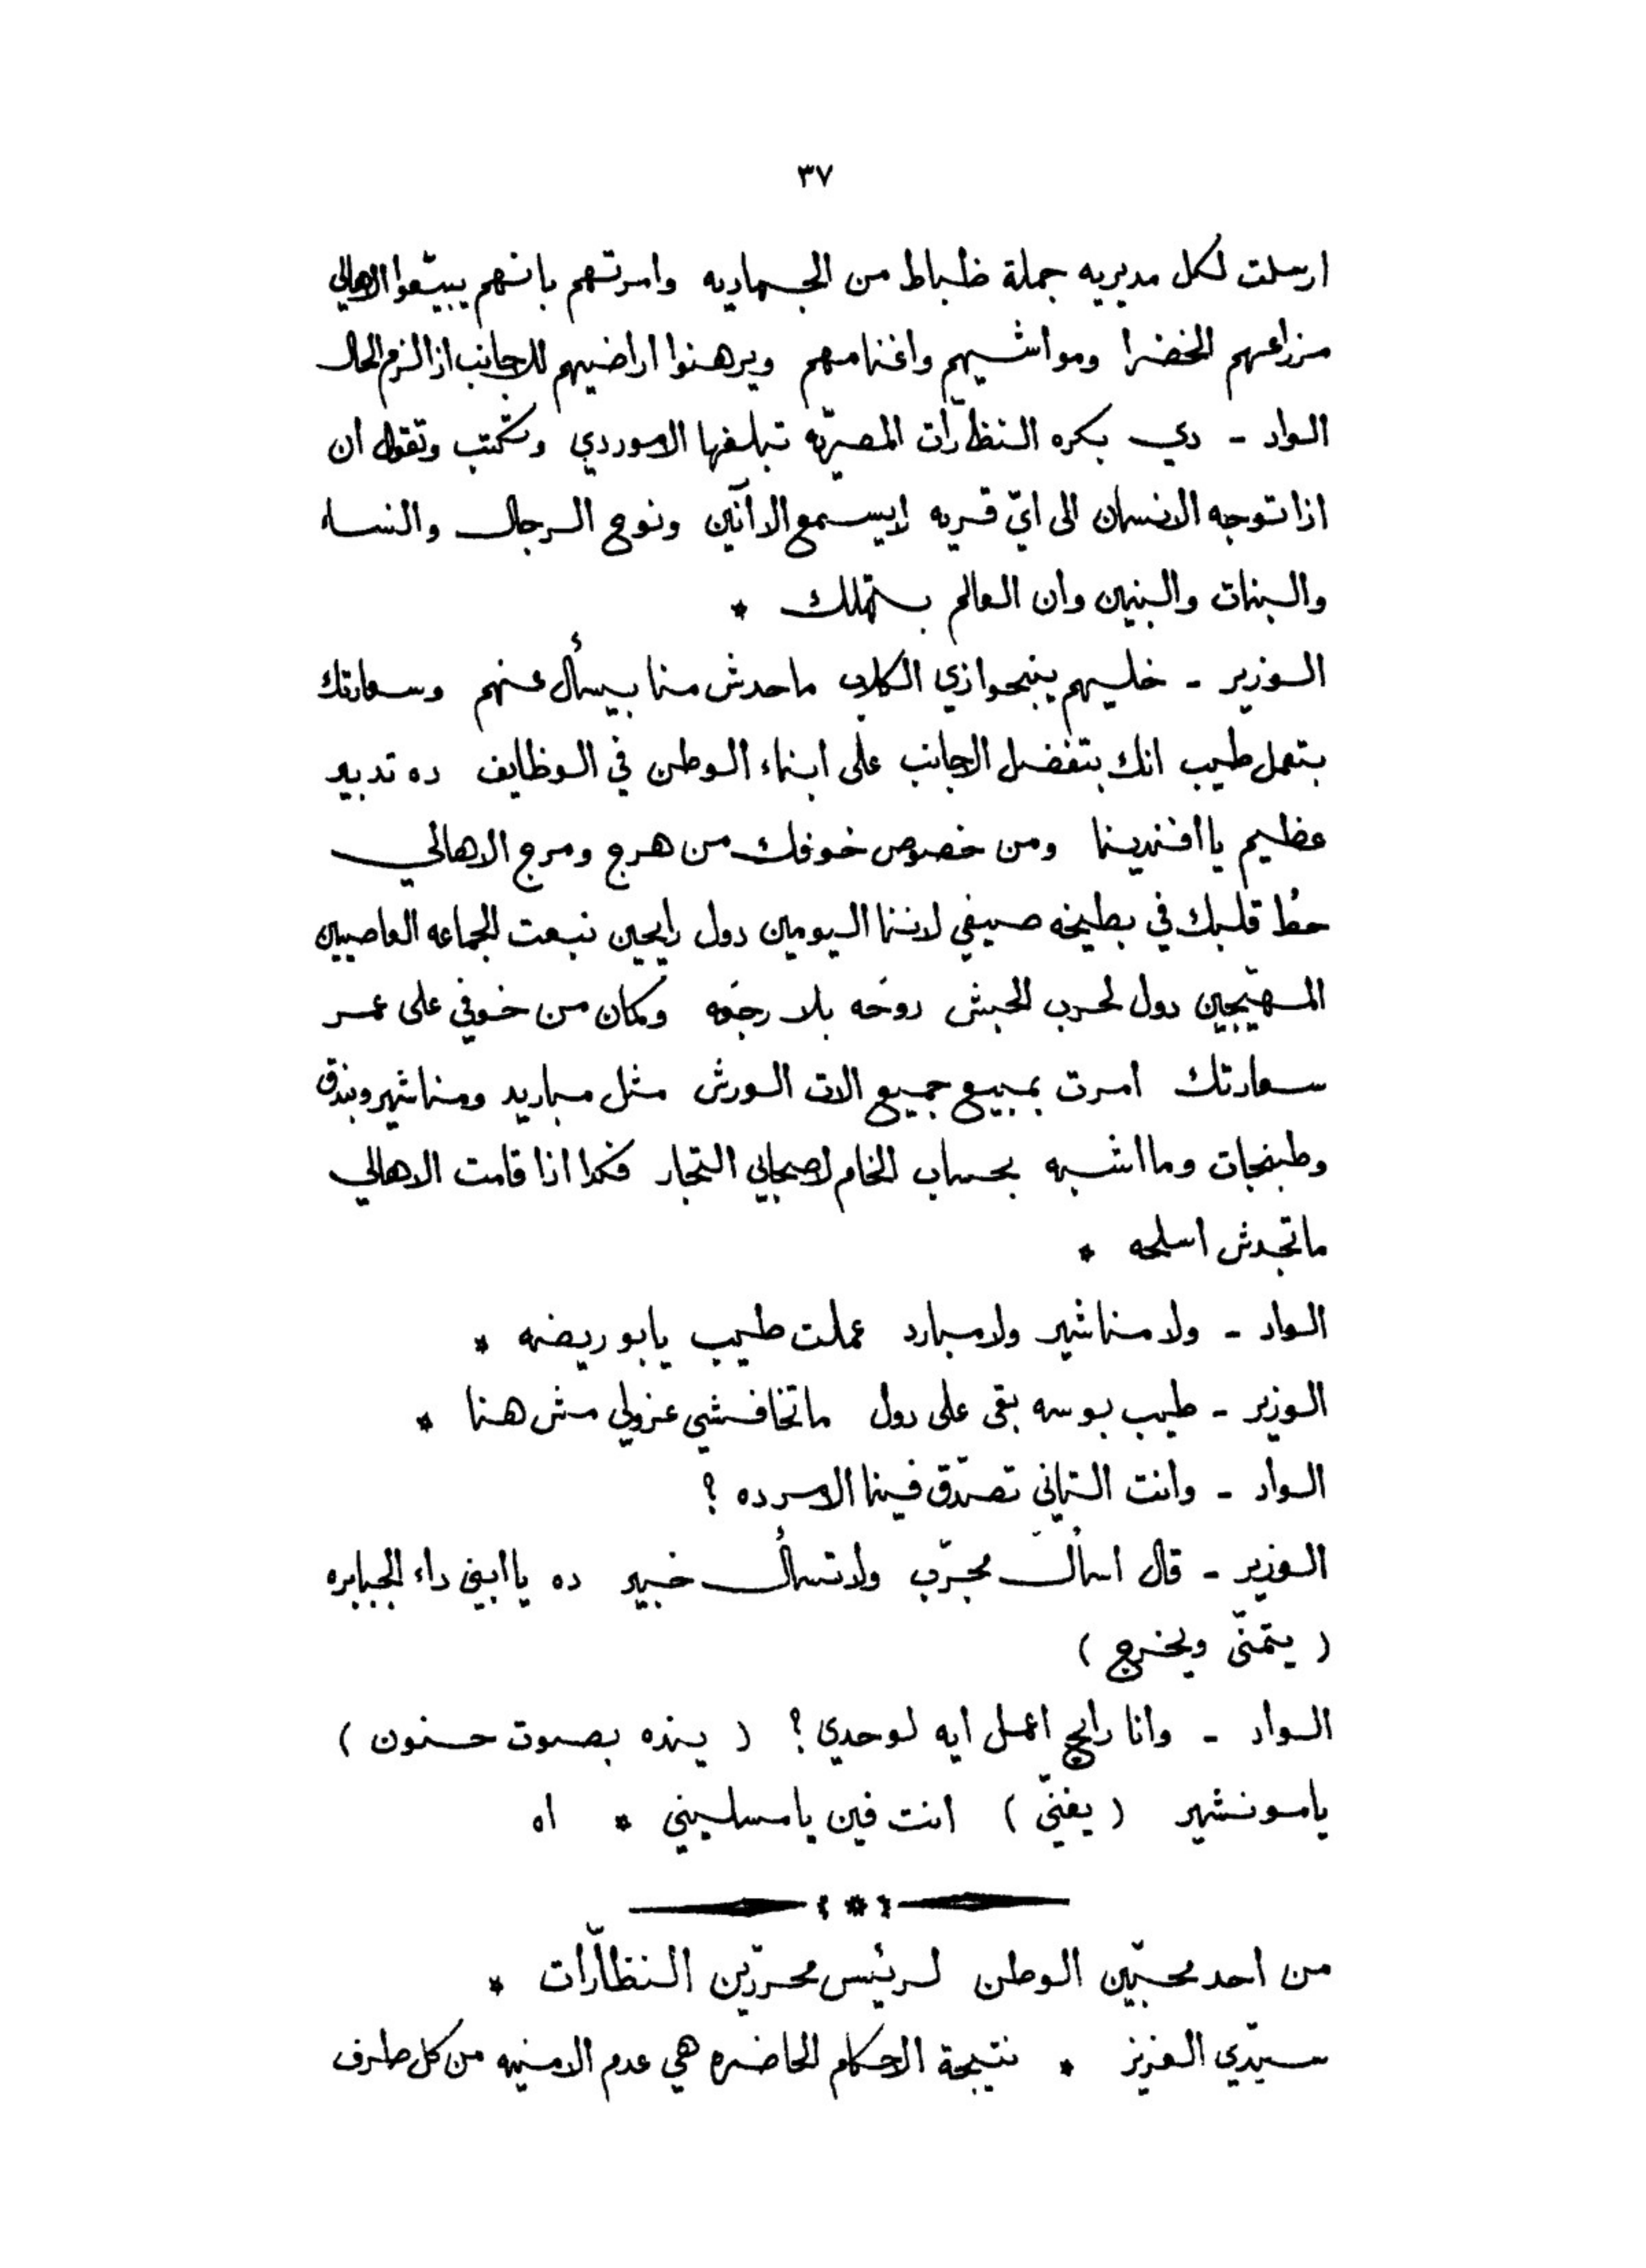 ٣٧
ارسلت لكل مديريه جملة ظباط من الجهاديه وامرتهم بانهم يبيّعوا الاهالي
مزراعهم الخضرا ومواشيهم واغنامهم ويرهنوا اراضيهم للاجانب اذا لزم الحال
الواد - دي بكره النظّارات المصريّه تبلغها الاموردي وتكتب وتقول ان
اذا توجه الانسان الى ايّ قريه لا يسمع الا آنين ونوح الرجال والنساء
والبنات والبنين وان العالم بتهلك *
الوزير - خليهم ينبحوا زي الكلاب ماحدش منا بيسأل عنهم وسعادتك
بتعمل طيب انك بتفضل الاجانب على ابناء الوطن في الوظايف ده تدبير
عظيم يا افندينا ومن خصوص خوفك من هرج ومرج الاهالي
حطّ قلبك في بطيخه صيفي لاننا اليومين دول رايحين نبعت الجماعه العاصيين
المهيّجين دول لحرب الحبش روحَه بلا رجعَه وكمان من خوفي على عمر
سعادتك امرت بمبيع جميع الات الورش مثل مباريد ومناشير وبندق
وطبنجات وما اشبه بحساب الخام لاصحابي التجار فكدا اذا قامت الاهالي
ماتجدش اسلحه *
الواد - ولا مناشير ولا مبارد عملت طيب يا بو ريضه *
الوزير - طيب بوسه بقى على دول ماتخافشي عزولي مش هنا *
الواد - وانت التاني تصدّق فينا الامر ده ؟
الوزير - قال اسأل مجرّب ولا تسأل خبير ده يا ابني داء الجبابره
( يتمنّى ويخرج )
الواد - وانا رايح اعمل ايه لوحدي ؟ ( ينده بصوت حنون )
يا مونشير ( يغنّي ) انت فين يا مسليني * اه
من احد محبّين الوطن لرئيس محررّين النظّارات *
سيّدي العزيز * نتيجة الاحكام الحاضره هي عدم الامنيه من كل طرف